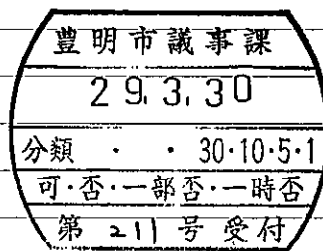 豊明市議事課
29.3.30
分類 ・ ・ 30・10・5・1
可・否・一部否・一時否
第 211 号 受付